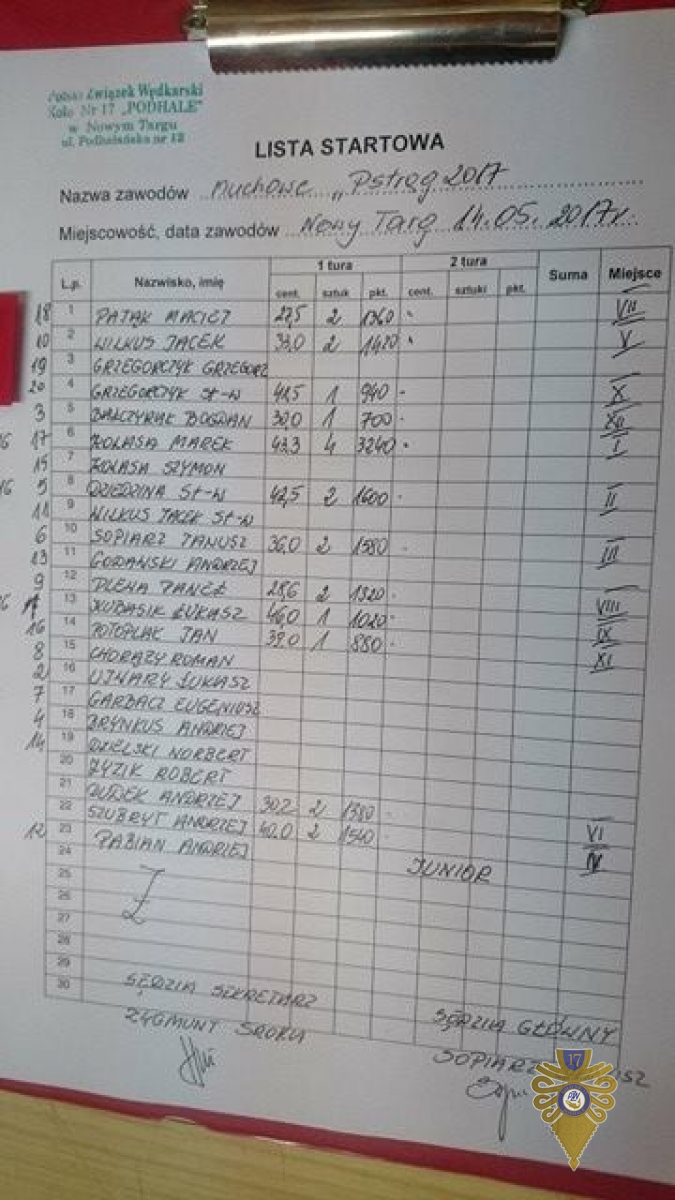 Polski Związek Wędkarski
Koło Nr 17 „PODHALE"
w Nowym Targu
ul. Podhalańska nr 12
LISTA STARTOWA
Nazwa zawodów Muchowe „Pstrąg 2017
Miejscowość, data zawodów Nowy Targ 14.05.2017r.
L.p. Nazwisko, imię 1 tura 2 tura Suma Miejsce
cent. sztuk pkt. cent. sztuki pkt.
18 1 PAJĄK MACIEJ 27,5 2 1360 VII
10 2 WILKUS JACEK 33,0 2 1420 V
19 3 GRZEGORCZYK GRZEGORZ
20 4 GRZEGORCZYK St-W 41,5 1 940 X
3 5 BOGDAN 30,0 1 700 XII
17 6 KOLASA MAREK 43,3 4 3240 I
15 7 KOLASA SZYMON
5 8 DZIEDZINA St-W 42,5 2 1600 II
11 9 WILKUS JACEK St-W
6 10 SOPIARZ JANUSZ 36,0 2 1580 III
13 11 ANDRZEJ
9 12 28,6 2 1320 VIII
13 KUBASIK ŁUKASZ 46,0 1 1020 IX
16 14 POTOPLAK JAN 39,0 1 880 XI
8 15 CHORĄŻY ROMAN
2 16 UJWARY ŁUKASZ
7 17 GARBACZ EUGENIUSZ
4 18 BRYNKUS ANDRZEJ
14 19 DZIELSKI NORBERT
20 ZYZIK ROBERT
21 DUDEK ANDRZEJ 30,2 2 1380 VI
22 SZUBRYT ANDRZEJ 40,0 2 1540 IV
12 23 FABIAN ANDRZEJ
24 JUNIOR
25
26
27
28
29
30
SĘDZIA SEKRETARZ
ZYGMUNT SROKA
SĘDZIA GŁÓWNY
SOPIARZ
17